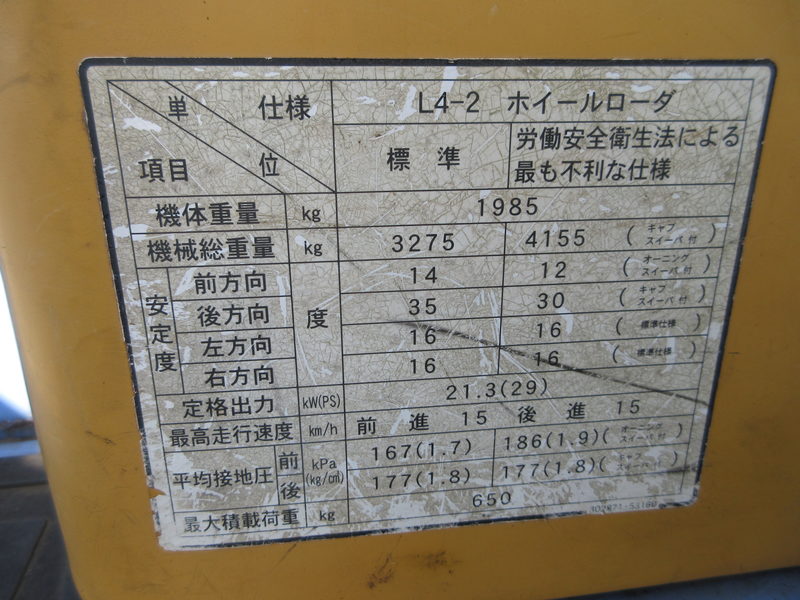 単 仕様 L4-2 ホイールローダ
項目 位 標準 労働安全衛生法による
最も不利な仕様
機体重量 kg 1985
機械総重量 kg 3275 4155 (キャブ スイーパ付)
安定度 前方向 度 14 12 (オーニング スイーパ付)
後方向 35 30 (キャブ スイーパ付)
左方向 16 16 (標準仕様)
右方向 16 16 (標準仕様)
定格出力 kW(PS) 21.3(29)
最高走行速度 km/h 前進 15 後進 15
平均接地圧 前 kPa 167(1.7) 186(1.9) (オーニング スイーパ付)
後 (kg/cm²) 177(1.8) 177(1.8) (キャブ スイーパ付)
最大積載荷重 kg 650